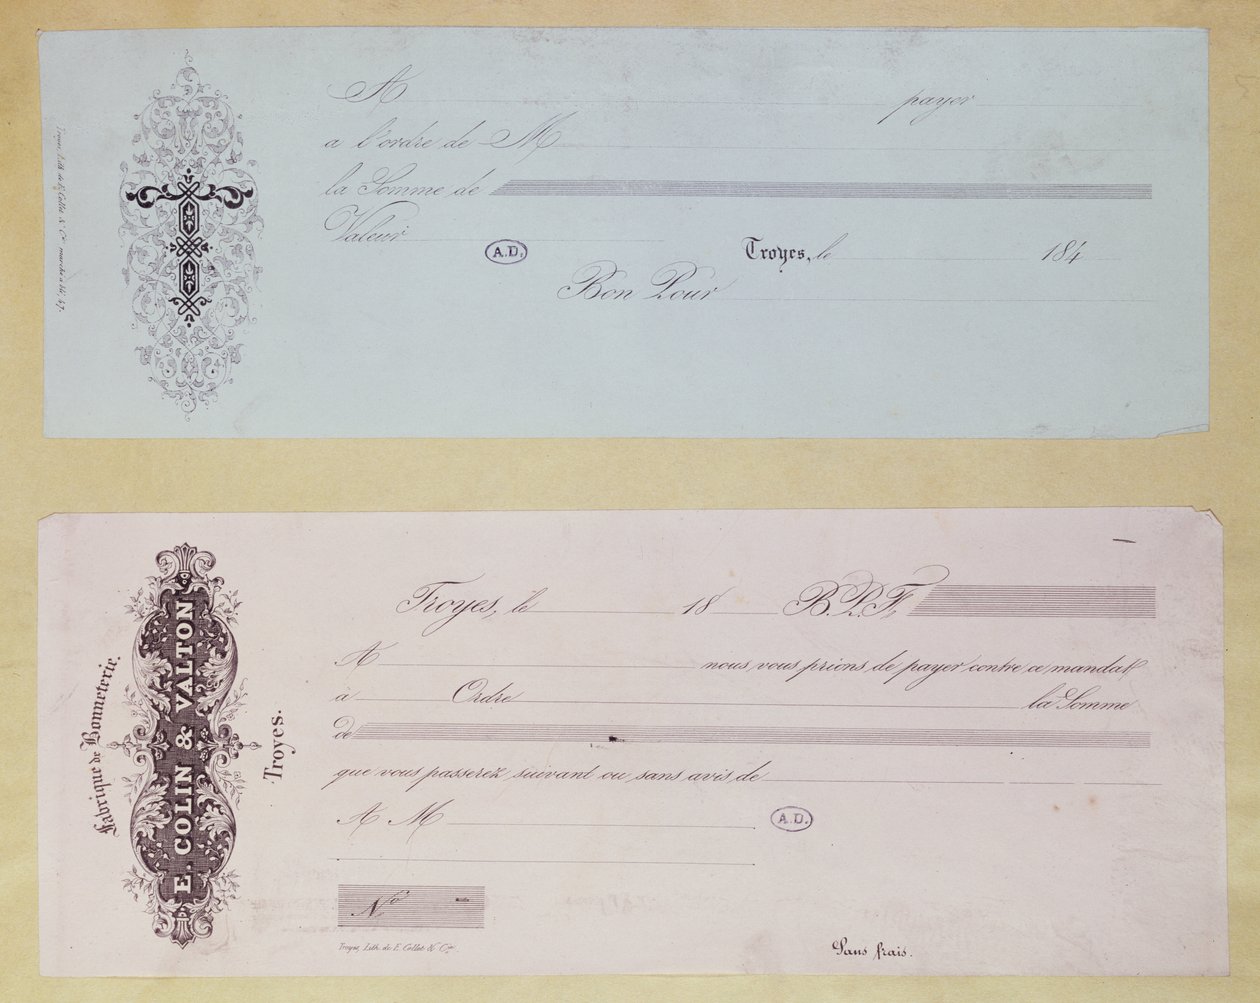 A payer
a l'ordre de M
la Somme de
Valeur
A.D.
Troyes, le 184
Bon Pour
Troyes, Lith. de F. Collet & Cie
Fabrique de Bonneterie.
E. COLIN & VALTON
Troyes.
Troyes, le 18 B.P.F.
A nous vous prions de payer contre ce mandat
à Ordre la Somme
de
que vous passerez suivant ou sans avis de
A M
A.D.
No
Troyes, Lith. de F. Collet & Cie
Sans frais.